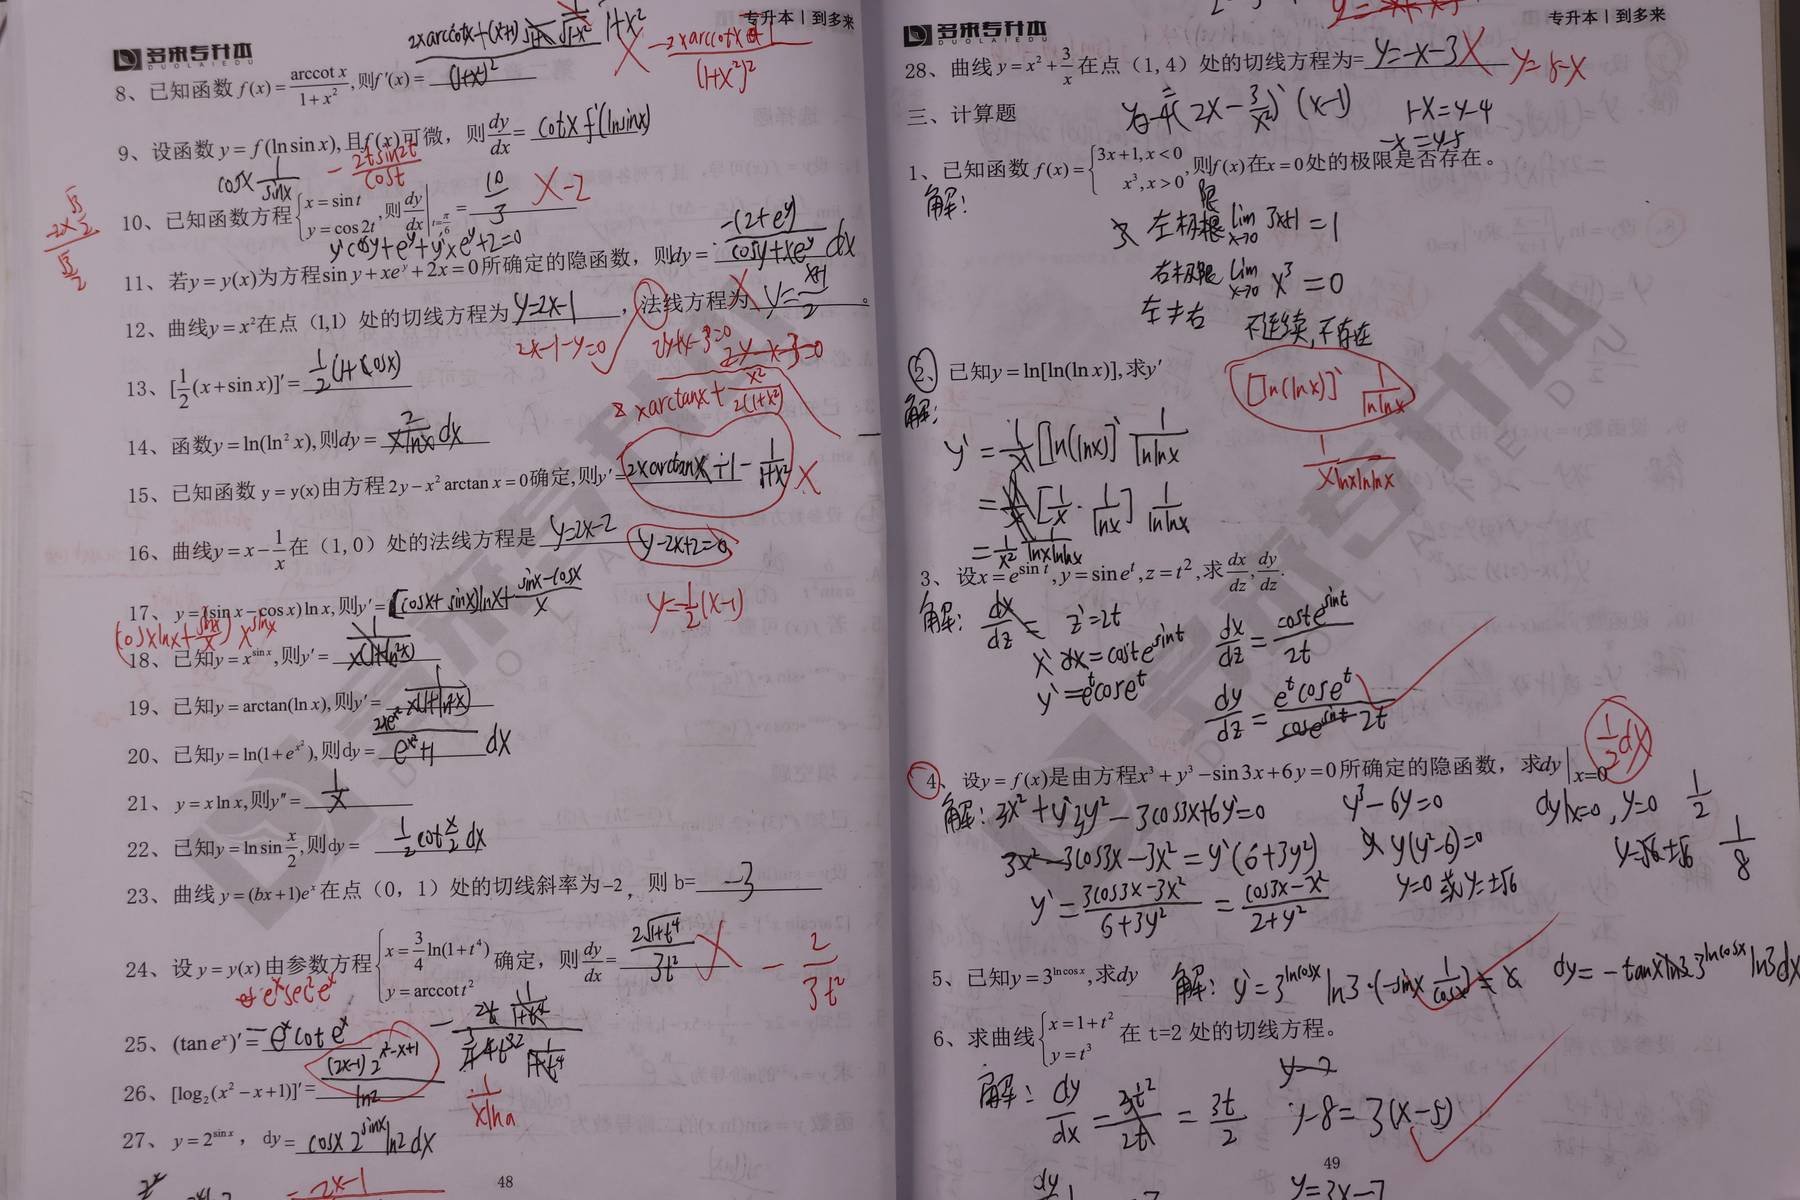 多来专升本
DUOLAIEDU
专升本 | 到多来
8、已知函数 f(x) = arccot x / (1+x²), 则f′(x) =
-2x arccot x - 1 / (1+x²)²
9、设函数 y = f(ln sin x), 且f(x)可微, 则 dy/dx = cotx f′(lnsinx)
cosx 1/sinx
-2tsin2t / cost
10、已知函数方程 { x = sin t, y = cos 2t , 则 dy/dx | t=π/6 = 10/3 X -2
y′cosy + e^y + y′xe^y + 2 = 0
11、若y = y(x)为方程sin y + xe^y + 2x = 0所确定的隐函数, 则dy = -(2+e^y) / (cosy+xe^y) dx
12、曲线y = x²在点 (1,1) 处的切线方程为 y=2x-1 , 法线方程为 y= x+1 / 2 。
2x-1-y=0
2y+x-3=0
13、[1/2 (x + sin x)]′ = 1/2 (1+cosx)
xarctanx + x² / 2(1+x²)
14、函数y = ln(ln² x), 则dy = 2 / xlnx dx
15、已知函数 y = y(x)由方程2y - x² arctan x = 0确定, 则y′ = 2xarctanx + 1 - 1/(1+x²) X
16、曲线y = x - 1/x 在 (1, 0) 处的法线方程是 y=2x-2
y-2x+2=0
y=-1/2(x-1)
17、y = (sin x - cos x) ln x, 则y′ = (cosx + sinx)lnx + (sinx-cosx)/x
(cosxlnx + sinx/x) x^sinx
18、已知y = x^sin x, 则y′ =
19、已知y = arctan(ln x), 则y′ = 1 / x(1+ln²x)
20、已知y = ln(1 + e^x²), 则dy = 2xe^x² / (e^x²+1) dx
21、y = x ln x, 则y″ = 1/x
22、已知y = ln sin x/2, 则dy = 1/2 cot x/2 dx
23、曲线 y = (bx + 1)e^x 在点 (0, 1) 处的切线斜率为-2, 则 b= -3
24、设 y = y(x) 由参数方程 { x = 3/4 ln(1 + t⁴), y = arccot t² 确定, 则 dy/dx = 2√1+t⁴ / 3t² X - 2/3t²
e^x sec² e^x
25、(tan e^x)′ = -e^x cot e^x
26、[log₂(x² - x + 1)]′ = (2x-1) 2^x²-x+1 / ln2
1/xlna
27、y = 2^sin x, dy = cosx 2^sinx ln2 dx
2x-1
48
多来专升本
DUOLAIEDU
专升本 | 到多来
28、曲线 y = x² + 3/x 在点 (1, 4) 处的切线方程为= y=-x-3 X y=5-x
y-4=(2x - 3/x²)′ (x-1) 1-x=y-4
-x=y-5
三、计算题
1、已知函数 f(x) = { 3x + 1, x < 0, x³, x > 0 , 则f(x)在x = 0处的极限是否存在。
解: 左极限 lim x→0 3x+1 = 1
右极限 lim x→0 x³ = 0
左≠右 不连续, 不存在
2、已知y = ln[ln(ln x)], 求y′
[ln(lnx)]′ 1/lnlnx
解:
y′ = 1/x [ln(lnx)]′ 1/lnlnx
1 / xlnxlnlnx
= [1/x · 1/lnx] 1/lnlnx
= 1/x² 1/lnxlnlnx
3、设x = e^sin t, y = sin e^t, z = t², 求 dx/dz, dy/dz.
解: dx/dz = z′=2t dx/dz = coste^sint / 2t
x′ = coste^sint
y′ = e^t cose^t dy/dz = e^t cose^t / 2t
4、设y = f(x)是由方程x³ + y³ - sin 3x + 6y = 0所确定的隐函数, 求dy | x=0 1/2 dx
解: 3x² + y′3y² - 3cos3x + 6y′ = 0 y³ - 6y = 0 dy|x=0, y=0 1/2
3x² - 3cos3x - 3x² = y′(6+3y²) y(y²-6)=0 y=√6 ±√6 1/8
y′ = 3cos3x-3x² / 6+3y² = cos3x-x² / 2+y² y=0 或 y=±√6
5、已知y = 3^ln cos x, 求dy 解: y′ = 3^lncosx ln3·(-sinx 1/cosx) = dy = -tanx ln3 3^lncosx ln3 dx
6、求曲线 { x = 1 + t², y = t³ 在 t=2 处的切线方程。
解: dy/dx = 3t²/2t = 3t/2 y-8=3(x-5)
y=3x-7
49